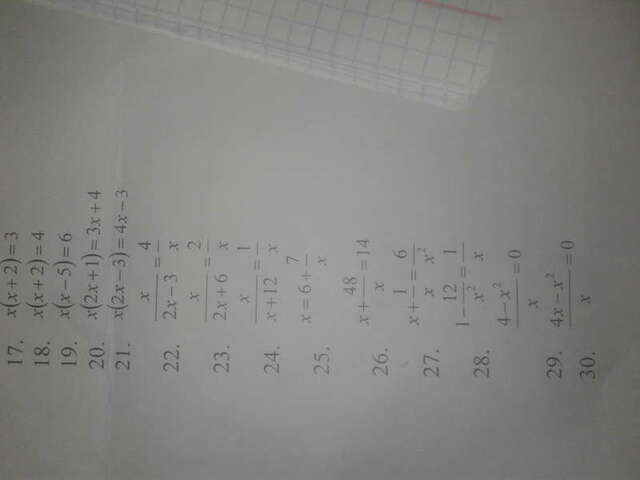 17. x(x+2)=3
18. x(x+2)=4
19. x(x−5)=6
20. x(2x+1)=3x+4
21. x(2x−3)=4x−3
22. x/(2x−3)=4/x
23. x/(2x+6)=2/x
24. x/(x+12)=1/x
25. x=6+7/x
26. x+48/x=14
27. x+1/x=6/x²
28. 1−12/x²=1/x
29. (4−x²)/x=0
30. (4x−x²)/x=0